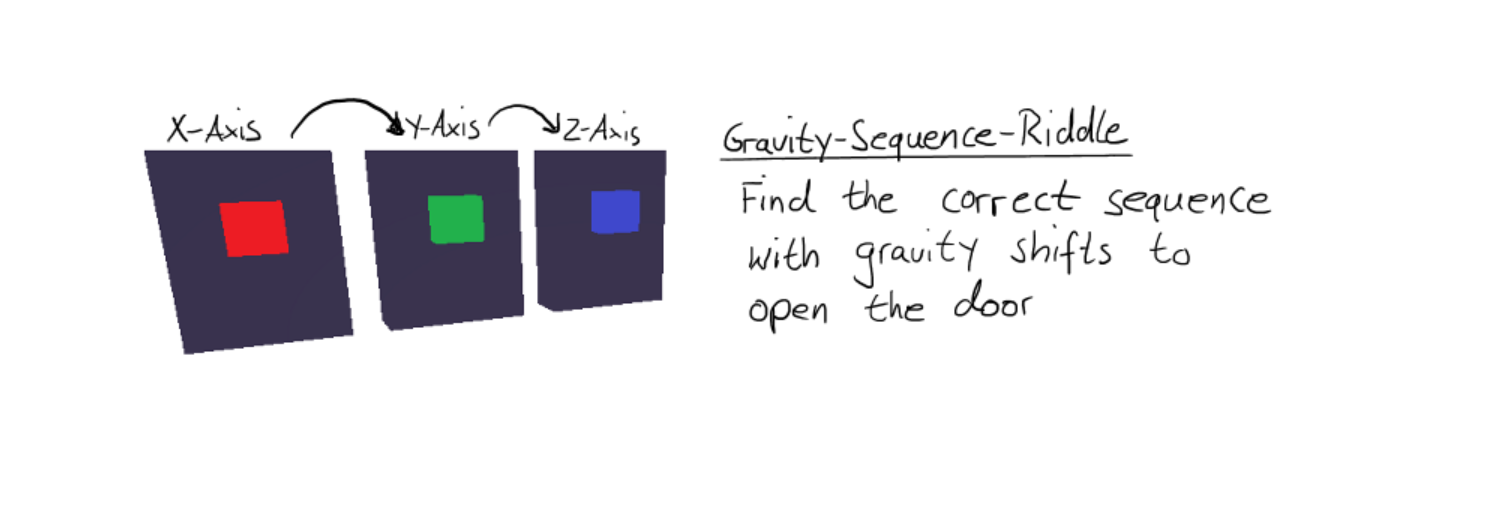 X-Axis Y-Axis Z-Axis
Gravity-Sequence-Riddle
Find the correct sequence
with gravity shifts to
open the door